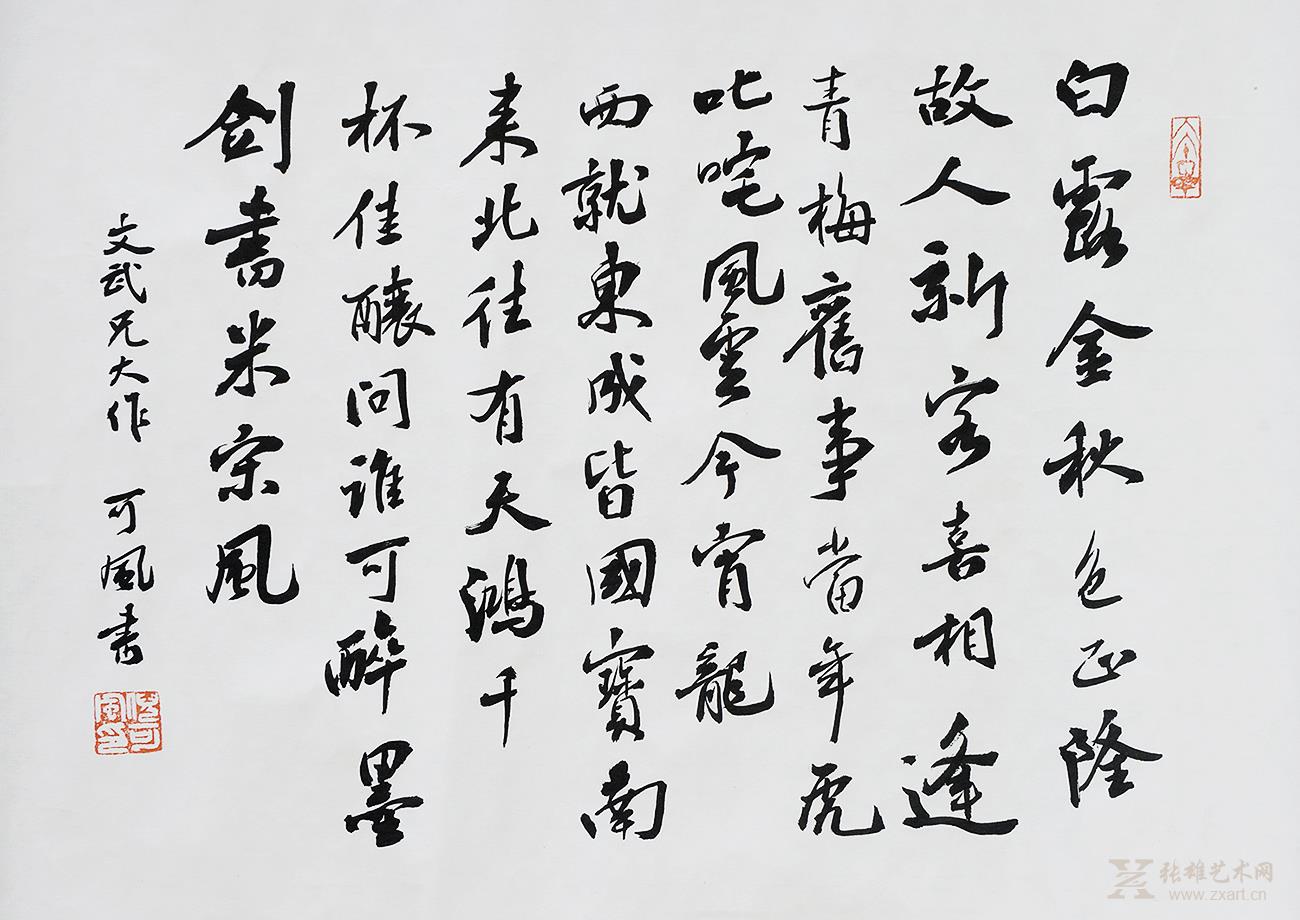 白露金秋色正隆
故人新客喜相逢
青梅舊事當年虎
叱咤風雲今宵龍
西就東成皆國寶南
来北往有天鴻千
杯佳釀問誰可醉墨
劍書米宗風
文武兄大作 可風書
张雄艺术网
www.zxart.cn